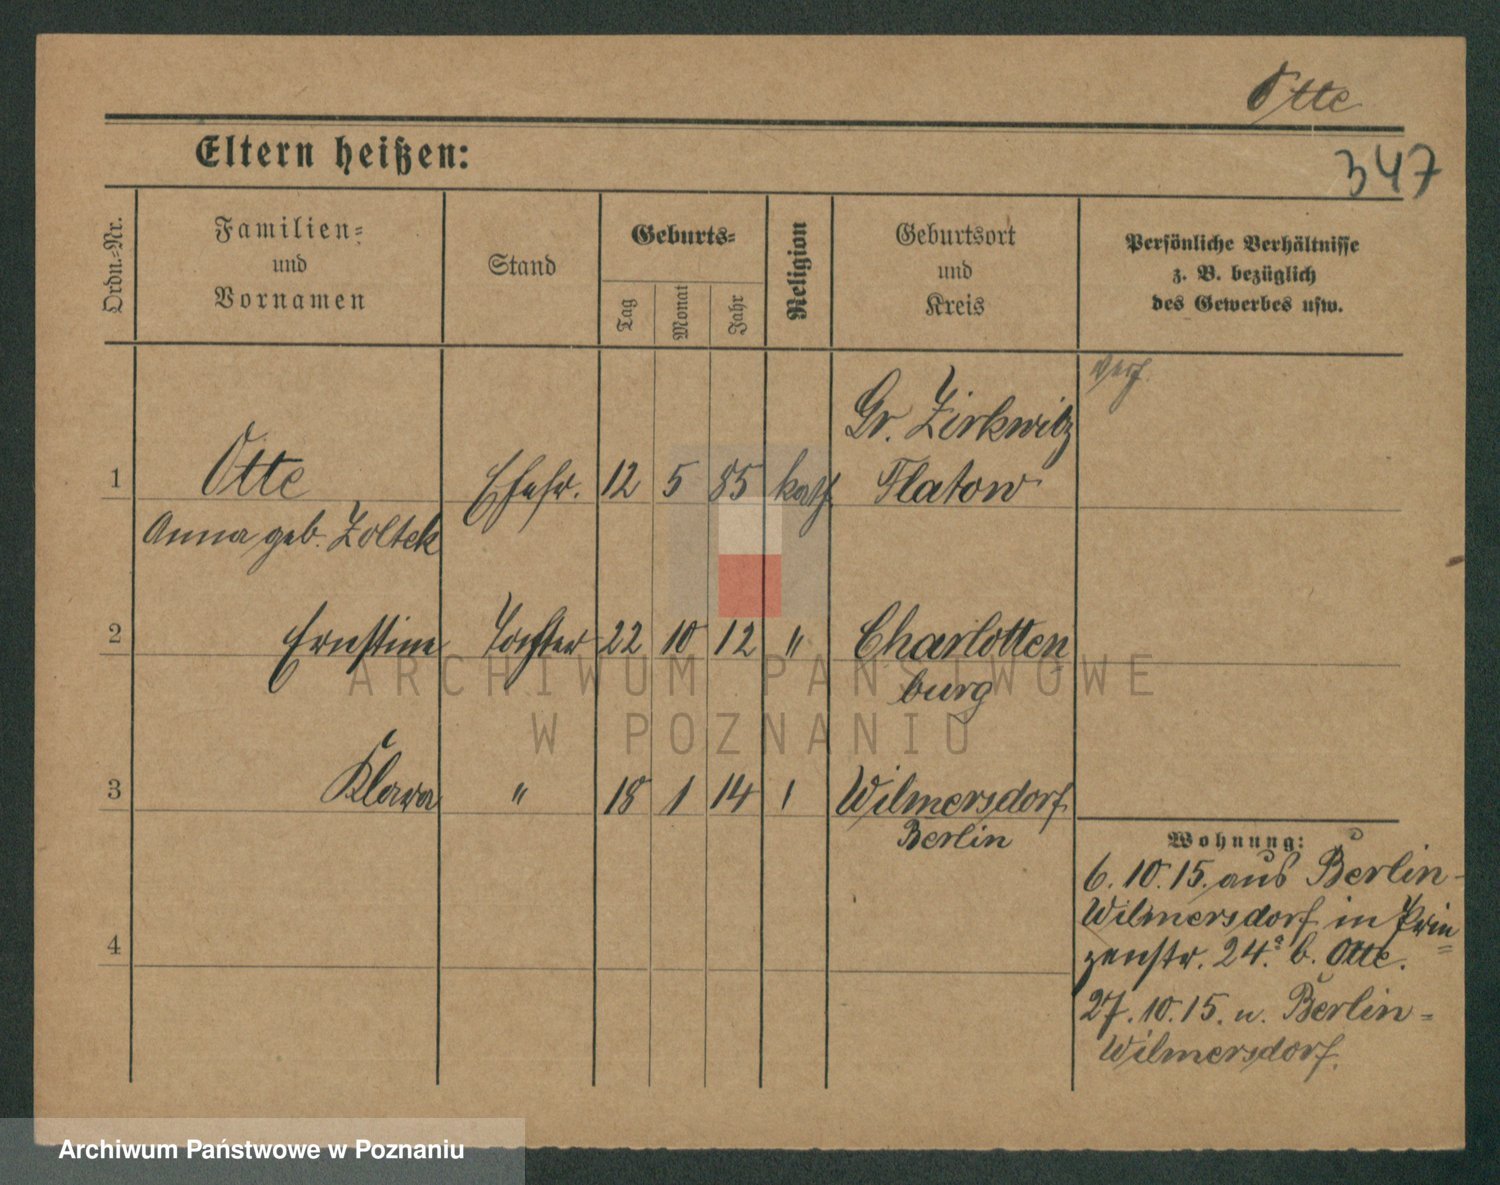 Otte
347
Eltern heißen:
Ordn.-Nr.
Familien-
und
Vornamen
Stand
Geburts-
Tag
Monat
Jahr
Religion
Geburtsort
und
Kreis
Persönliche Verhältnisse
z. B. bezüglich
des Gewerbes usw.
verh.
Gr. Zirkwitz
1 Otte Ehefr. 12 5 85 kath. Flatow
Anna geb. Zoltek
2 Ernestine Tochter 22 10 12 " Charlotten
burg
3 Klara " 18 1 14 " Wilmersdorf
Berlin
4
Wohnung:
6.10.15. aus Berlin-
Wilmersdorf in Prin=
zenstr. 24.a b. Otte.
27.10.15. n. Berlin=
Wilmersdorf.
ARCHIWUM PAŃSTWOWE
W POZNANIU
Archiwum Państwowe w Poznaniu